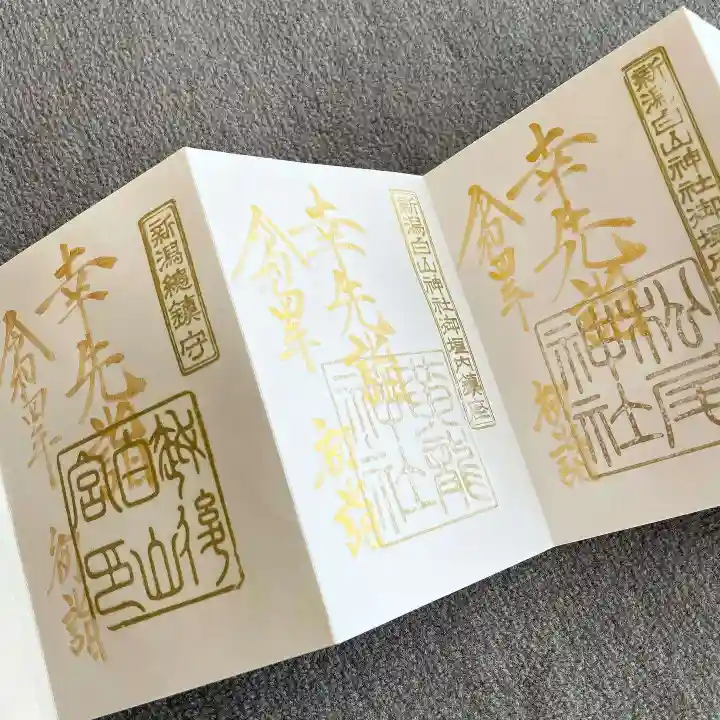 新潟白山神社御境内
幸先詣
令和四年 初詣
松尾神社
新潟白山神社御境内鎮座
幸先詣
令和四年 初詣
黄龍神社
新潟總鎮守
幸先詣
令和四年 初詣
越後白山宮印